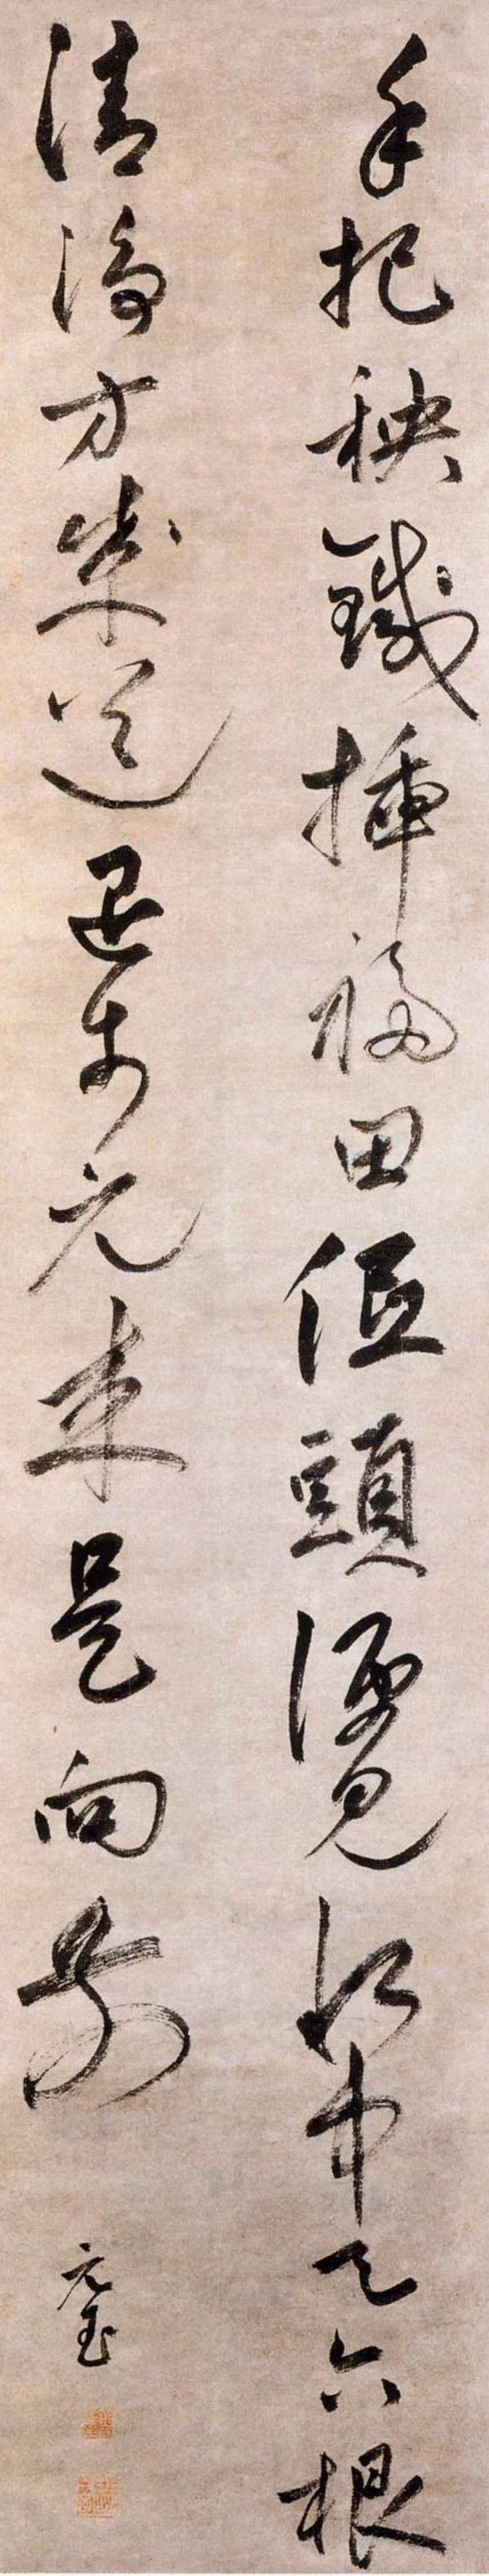 手把秧鍼挿福田低頭便見水中天六根
清淨方成道退步元來是向前
元